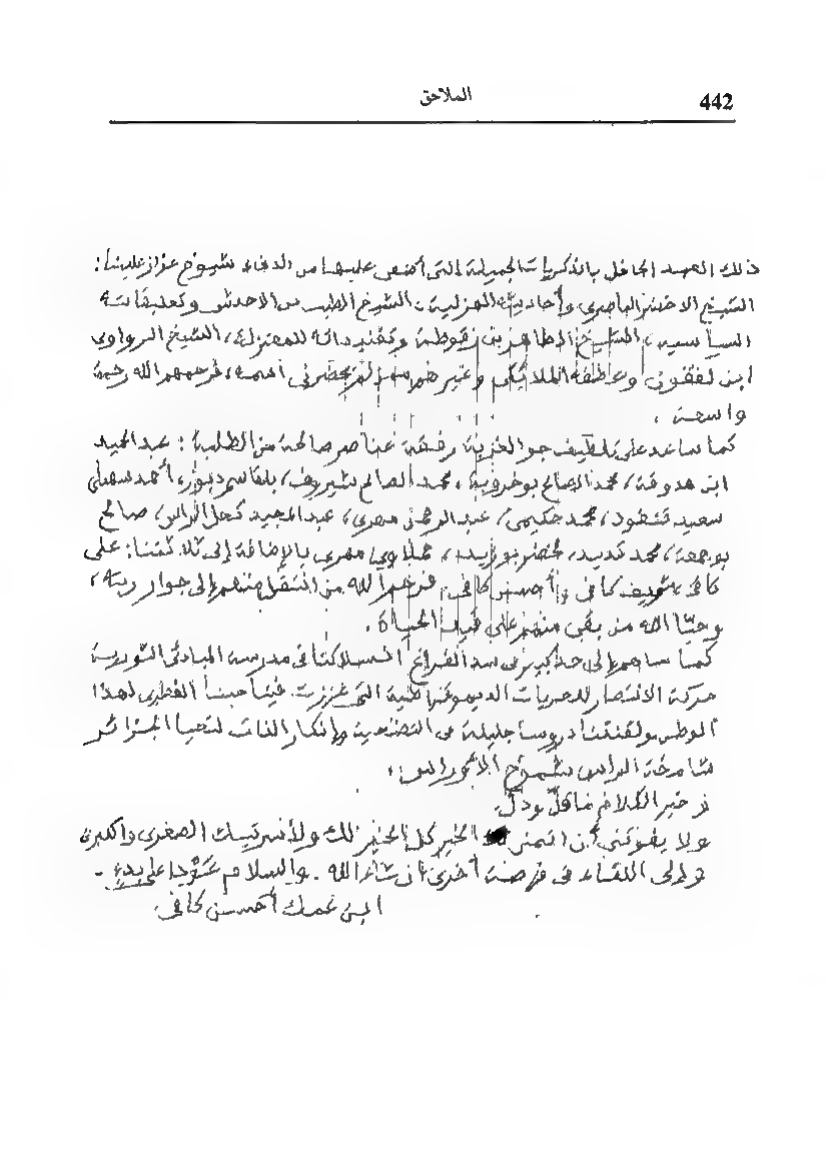 442
الملاحق
ذلك العهد الحافل بالذكريات الجميلة التي أضفى عليها من الدفء شيوخ عزاز علينا:
الشيخ الاخضر الباصري وأحاديثه الهزلية، الشيخ الطيب بن الاحدش وتعليقاته
السياسية، الشيخ الطاهر بن زقوطة وتفنيداته للمعتزلة، الشيخ الزواوي
ابن لفقون وعاطفه الملائكي وغيرهم ممن لم يحضرني أسمه، فرحمهم الله رحمة
واسعة.
كما ساعد على تلطيف جو الغربة رفقة عناصر صالحة من الطلبة: عبد الحميد
ابن هدوقة، محمد الصالح بوخروبة، محمد الصالح شيروف، بلقاسم ديبور، أحمد سهيلي
سعيد قنقود، محمد حكيمي، عبد الرحمن مهري، عبد المجيد كحل الراس، صالح
بوجمعة، محمد قديد، لخضر بوزيد، مهري بالإضافة إلى ثلاثتنا: علي
كافي، شريف كافي وأحسن كافي. فرحم الله من انتقل منهم إلى جوار ربه،
وحيّا الله من بقي منهم على قيد الحياة.
كما ساهم إلى حد كبير في سد الفراغ انسلاكنا في مدرسة المبادئ الثورية
حركة الانتصار للحريات الديموقراطية التي عززت فينا حبنا الفطري لهذا
الوطن ولقنتنا دروسا جليلة في التضحية وإنكار الذات لتحيا الجزائر
شامخة الراس شموخ الأوراس.
وخير الكلام ما قلّ ودلّ.
ولا يفوتني أن اتمنى الخير كل الخير لك ولأسرتيك الصغرى والكبرى
وإلى اللقاء في فرصة أخرى إن شاء الله. والسلام عَوْدا على بدء.
ابن عمك أحسن كافي.